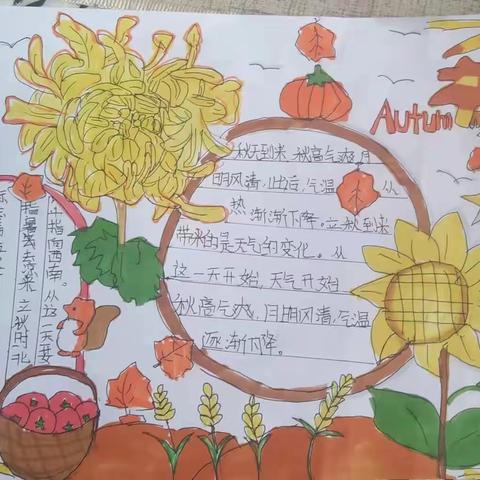 Autum
秋天到来,秋高气爽,月
明风清,此后,气温 从
热渐渐下降。立秋到来
带来的是天气的变化。从
这一天开始,天气开始
秋高气爽,月明风清,气温
逐渐下降。
斗指向西南。从这一天开
指暑去凉来 立秋时北